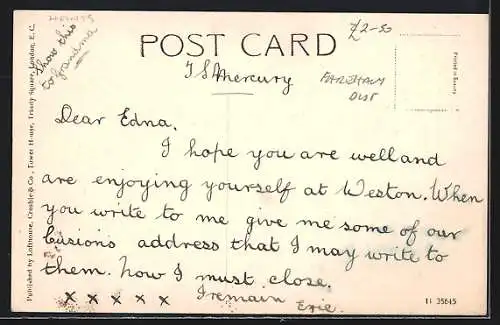 HANTS
Show this
to grandma
£2-50
POST CARD
T S Mercury
FAREHAM
DIST
Printed in Saxony
Dear Edna.
I hope you are well and
are enjoying yourself at Weston. When
you write to me give me some of our
cusions address that I may write to
them. now I must close.
x x x x x
Iremain
Eric.
Published by Lofthouse, Crosbie & Co., Tower House, Trinity Square, London, E.C.
11 35645